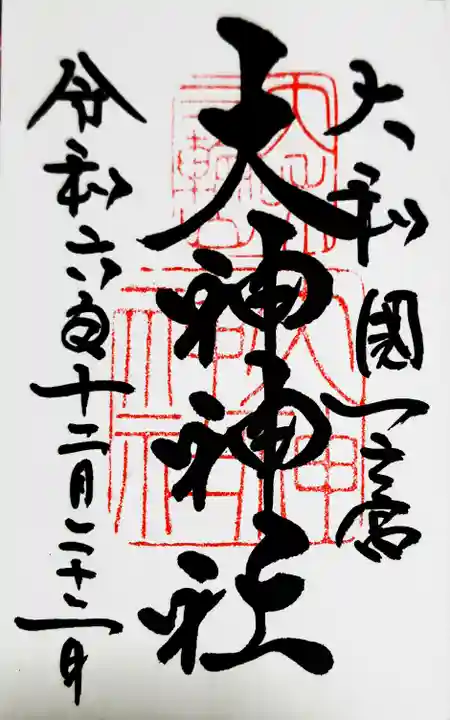 大和國一之宮
大神神社
令和六年十二月二十二日
大神神社